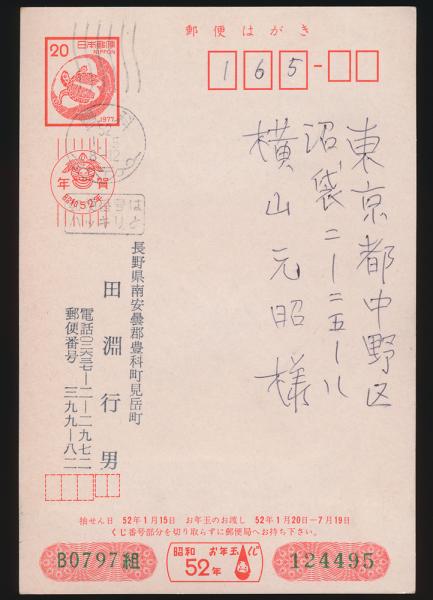 郵便はがき
165-
20
日本郵便
NIPPON
1977
年賀
昭和52年
東京都中野区
沼袋二ー二五ー八
横山元昭様
長野県南安曇郡豊科町見岳町
田淵行男
電話〇二六三七ー二ー二九七二
郵便番号 三九九ー八二
抽せん日 52年1月15日 お年玉のお渡し 52年1月20日ー7月19日
くじ番号部分を切り取らずに郵便局へお持ち下さい。
B0797組
昭和 お年玉くじ
52年
124495